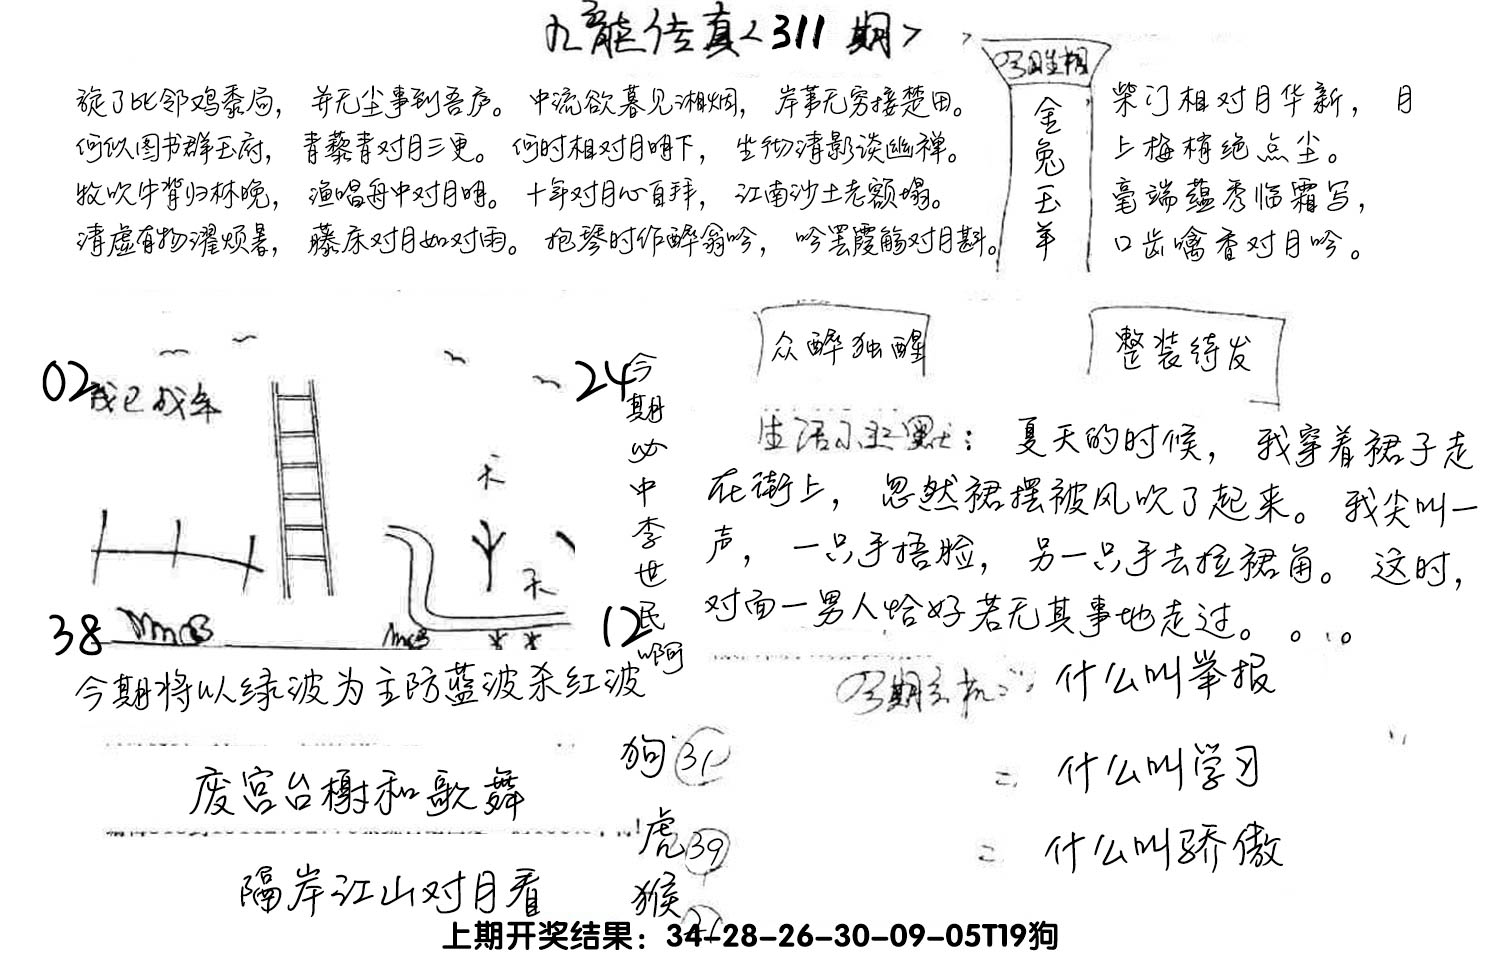 九龙传真<311期>
旋了比邻鸡黍局，并无尘事到吾庐。中流欲暮见湘烟，岸苇无穷接楚田。
何似图书群玉府，青藜青对月三更。何时相对月明下，生彻清影谈幽禅。
牧吹牛背归林晚，渔唱舟中对月明。十年对月心自拜，江南沙土老额塌。
清虚有物濯烦暑，藤床对月如对雨。抱琴时作醉翁吟，吟罢霞觞对月斟。
金兔玉羊
柴门相对月华新，月
上梅梢绝点尘。
毫端蕴秀临霜写，
口齿噙香对月吟。
02
24
38
12
今期必中李世民啊
今期将以绿波为主防蓝波杀红波
众醉独醒
整装待发
生活小幽默：夏天的时候，我穿着裙子走
在街上，忽然裙摆被风吹了起来。我尖叫一
声，一只手捂脸，另一只手去拉裙角。这时，
对面一男人恰好若无其事地走过。。。。
今期玄机：什么叫举报
二 什么叫学习
二 什么叫骄傲
废宫台榭和歌舞
隔岸江山对月看
狗 31
虎 39
猴
上期开奖结果：34-28-26-30-09-05T19狗